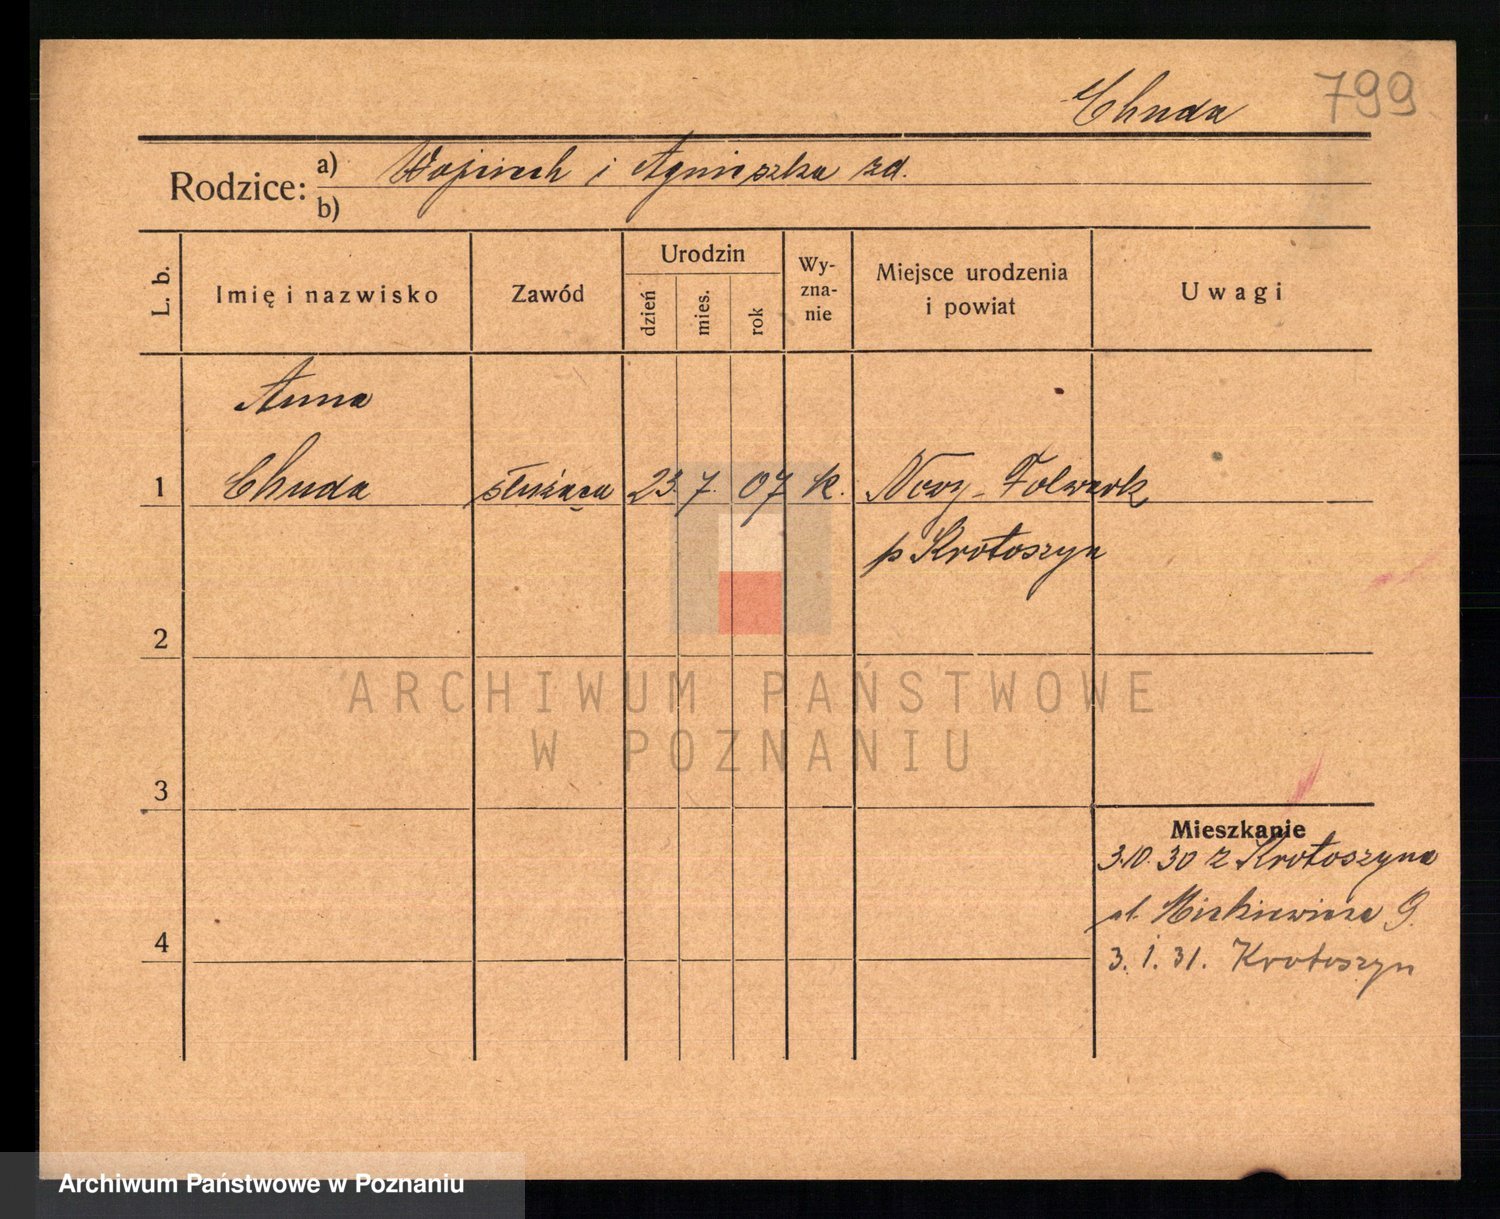 Chuda 799
Rodzice: a) Wojciech i Agnieszka zd.
b)
L. b. Imię i nazwisko Zawód Urodzin dzień mies. rok Wy-zna-nie Miejsce urodzenia i powiat Uwagi
Anna
1 Chuda służąca 23. 7. 07 k. Nowy-Folwark
p Krotoszyn
2
ARCHIWUM PAŃSTWOWE
W POZNANIU
3
Mieszkanie
3.10.30 z Krotoszyna
ul. Mickiewicza 9.
4
3.1.31. Krotoszyn
Archiwum Państwowe w Poznaniu